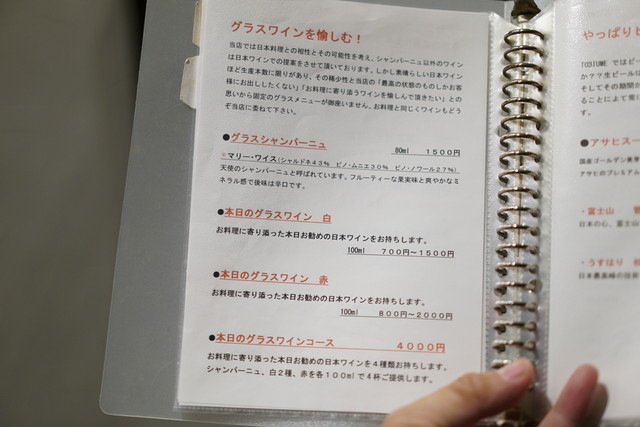 グラスワインを愉しむ！
当店では日本料理との相性とその可能性を考え、シャンパーニュ以外のワイン
は日本ワインでの提案をさせて頂いております。しかし素晴らしい日本ワイン
ほど生産本数に限りがあり、その稀少性と当店の「最高の状態のものしかお客
様にお出ししたくない」「お料理に寄り添うワインを愉しんで頂きたい」との
思いから固定のグラスメニューが御座いません。お料理と同じくワインもどう
ぞ当店に委ねて下さい。
●グラスシャンパーニュ
80ml １５００円
☆マリー・ワイス（シャルドネ４３％ ピノ・ムニエ３０％ ピノ・ノワール２７％）
天使のシャンパーニュと呼ばれています。フルーティーな果実味と爽やかなミ
ネラル感で後味は辛口です。
●本日のグラスワイン 白
お料理に寄り添った本日お勧めの日本ワインをお持ちします。
100ml ７００円～１５００円
●本日のグラスワイン 赤
お料理に寄り添った本日お勧めの日本ワインをお持ちします。
100ml ８００円～２０００円
●本日のグラスワインコース ４０００円
お料理に寄り添った本日お勧めの日本ワインを４種類お持ちします。
シャンパーニュ、白２種、赤を各１００ｍｌで４杯ご提供します。
やっぱりビ
TOSIUME ではビー
か？？生ビー
そしてその期間
ることによて常に
す。
●アサヒスー
国産ゴールデン
アサヒのプレミアム
・富士山
日本の心、富士山
・うすはり
日本最高峰の技術